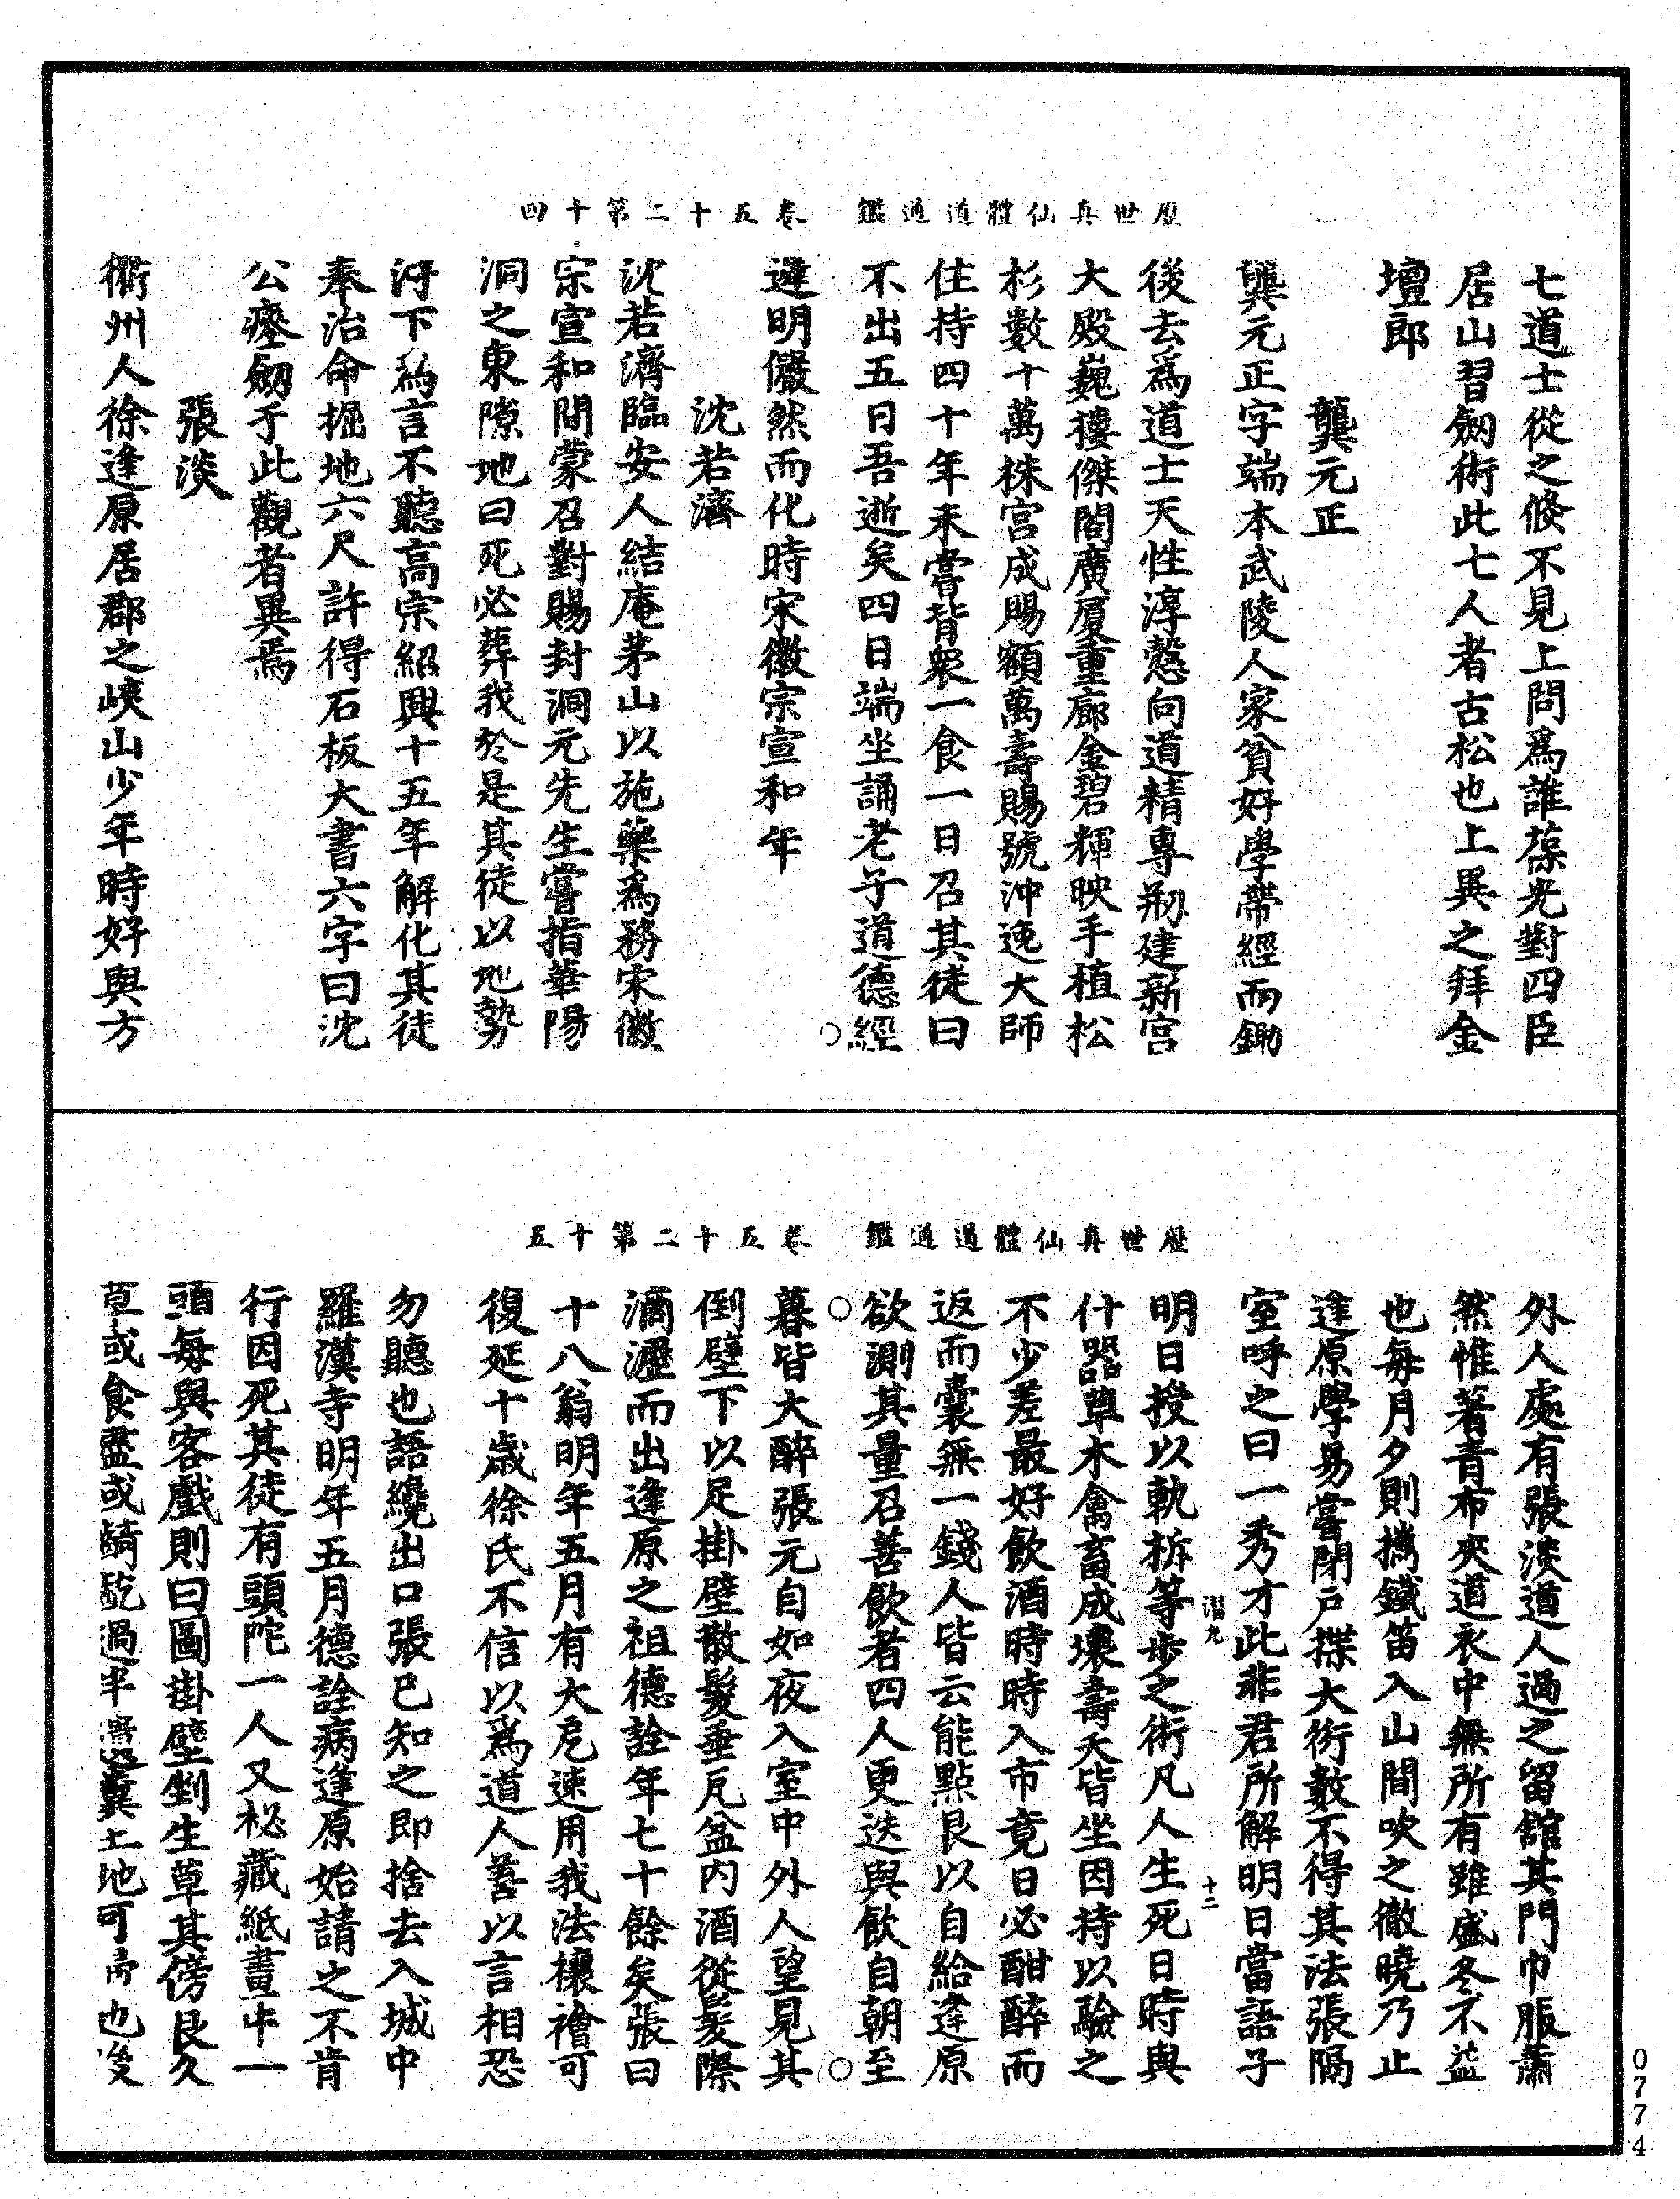 歷世真仙體道通鑑　卷五十二第十四
七道士從之倐不見上問爲誰葆光對四臣
居山習劒術此七人者古松也上異之拜金
壇郎
龔元正
龔元正字端本武陵人家貧好學帶經而鋤
後去爲道士天性淳慤向道精專剏建新宮
大殿巍樓傑閣廣厦重廊金碧輝映手植松
杉數十萬株宮成賜額萬壽賜號沖逸大師
住持四十年未嘗背衆一食一日召其徒曰
不出五日吾逝矣四日端坐誦老子道德經
遲明儼然而化時宋徽宗宣和年
沈若濟
沈若濟臨安人結庵茅山以施藥爲務宋徽
宗宣和間蒙召對賜封洞元先生嘗指華陽
洞之東隙地曰死必葬我於是其徒以地勢
汙下爲言不聽高宗紹興十五年解化其徒
奉治命掘地六尺許得石板大書六字曰沈
公瘞劒于此觀者異焉
張淡
衢州人徐逢原居郡之峽山少年時好與方
歷世真仙體道通鑑　卷五十二第十五
外人處有張淡道人過之留舘其門巾服蕭
然惟著青布夾道衣中無所有雖盛冬不益
也每月夕則攜鐵笛入山間吹之徹曉乃止
逢原學易嘗閉戶揲大衍數不得其法張隔
室呼之曰一秀才此非君所解明日當語子
淄九　十二
明日授以軌析等步之術凡人生死日時與
什器草木禽畜成壞壽夭皆坐因持以驗之
不少差最好飲酒時時入市竟日必酣醉而
返而囊無一錢人皆云能點艮以自給逢原
欲測其量召善飲者四人更迭與飲自朝至
暮皆大醉張元自如夜入室中外人望見其
倒壁下以足掛壁散髮垂瓦盆內酒從髮際
滴瀝而出逢原之祖德詮年七十餘矣張曰
十八翁明年五月有大戹速用我法禳禬可
復延十歲徐氏不信以爲道人善以言相恐
勿聽也語纔出口張已知之即捨去入城中
羅漢寺明年五月德詮病逢原始請之不肯
行因死其徒有頭陀一人又袐藏紙畫牛一
頭每與客戲則曰圖掛壁剉生草其傍良久
草或食盡或齮齕過半遺糞土地可掃也後
0774